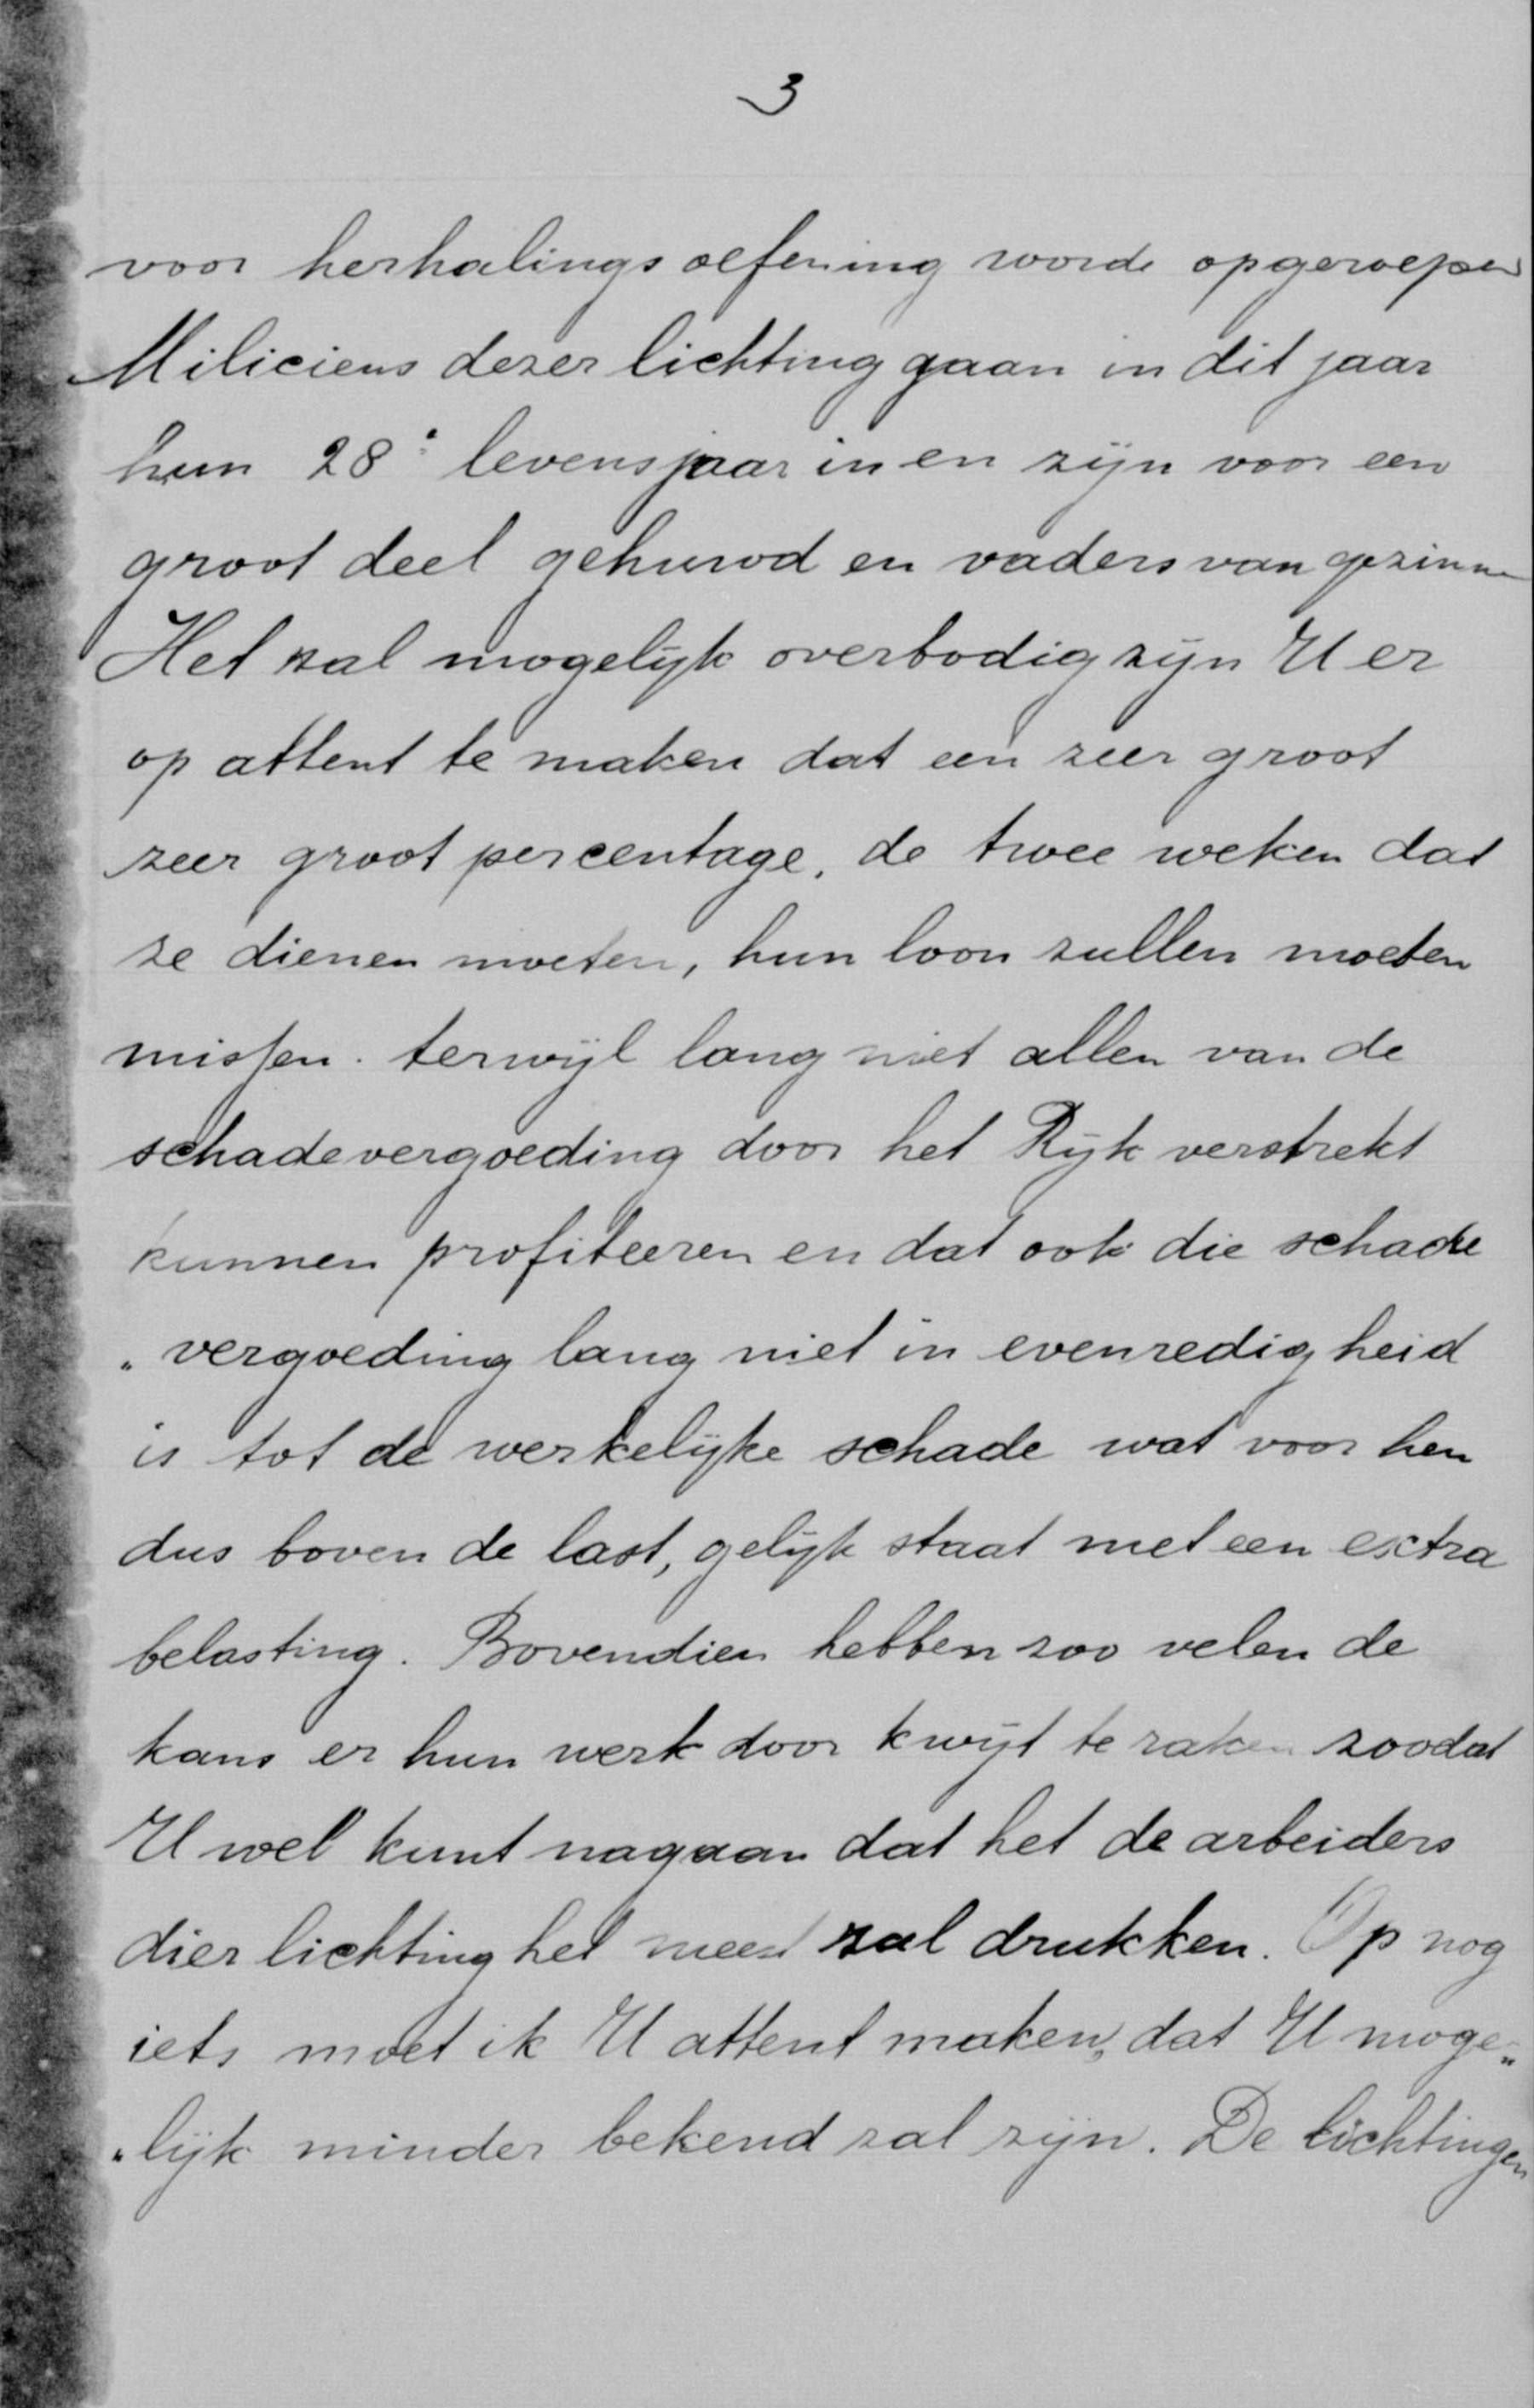 3
voor herhalings oefening worde opgeroepen
Miliciens dezer lichting gaan in dit jaar
hun 28e levensjaar in en zijn voor een
groot deel gehuwd en vaders van gezinnen
Het zal mogelijk overbodig zijn U er
op attent te maken dat een zeer groot
zeer groot percentage, de twee weken dat
ze dienen moeten, hun loon zullen moeten
missen. terwijl lang niet allen van de
schadevergoeding door het Rijk verstrekt
kunnen profiteeren en dat ook die schade
„vergoeding lang niet in evenredigheid
is tot de werkelijke schade wat voor hen
dus boven de last, gelijk staat met een extra
belasting. Bovendien hebben zoo velen de
kans er hun werk door kwijt te raken zoodat
U wel kunt nagaan dat het de arbeiders
dier lichting het meest zal drukken. Op nog
iets moet ik U attent maken, dat U moge„
„lijk minder bekend zal zijn. De lichtingen